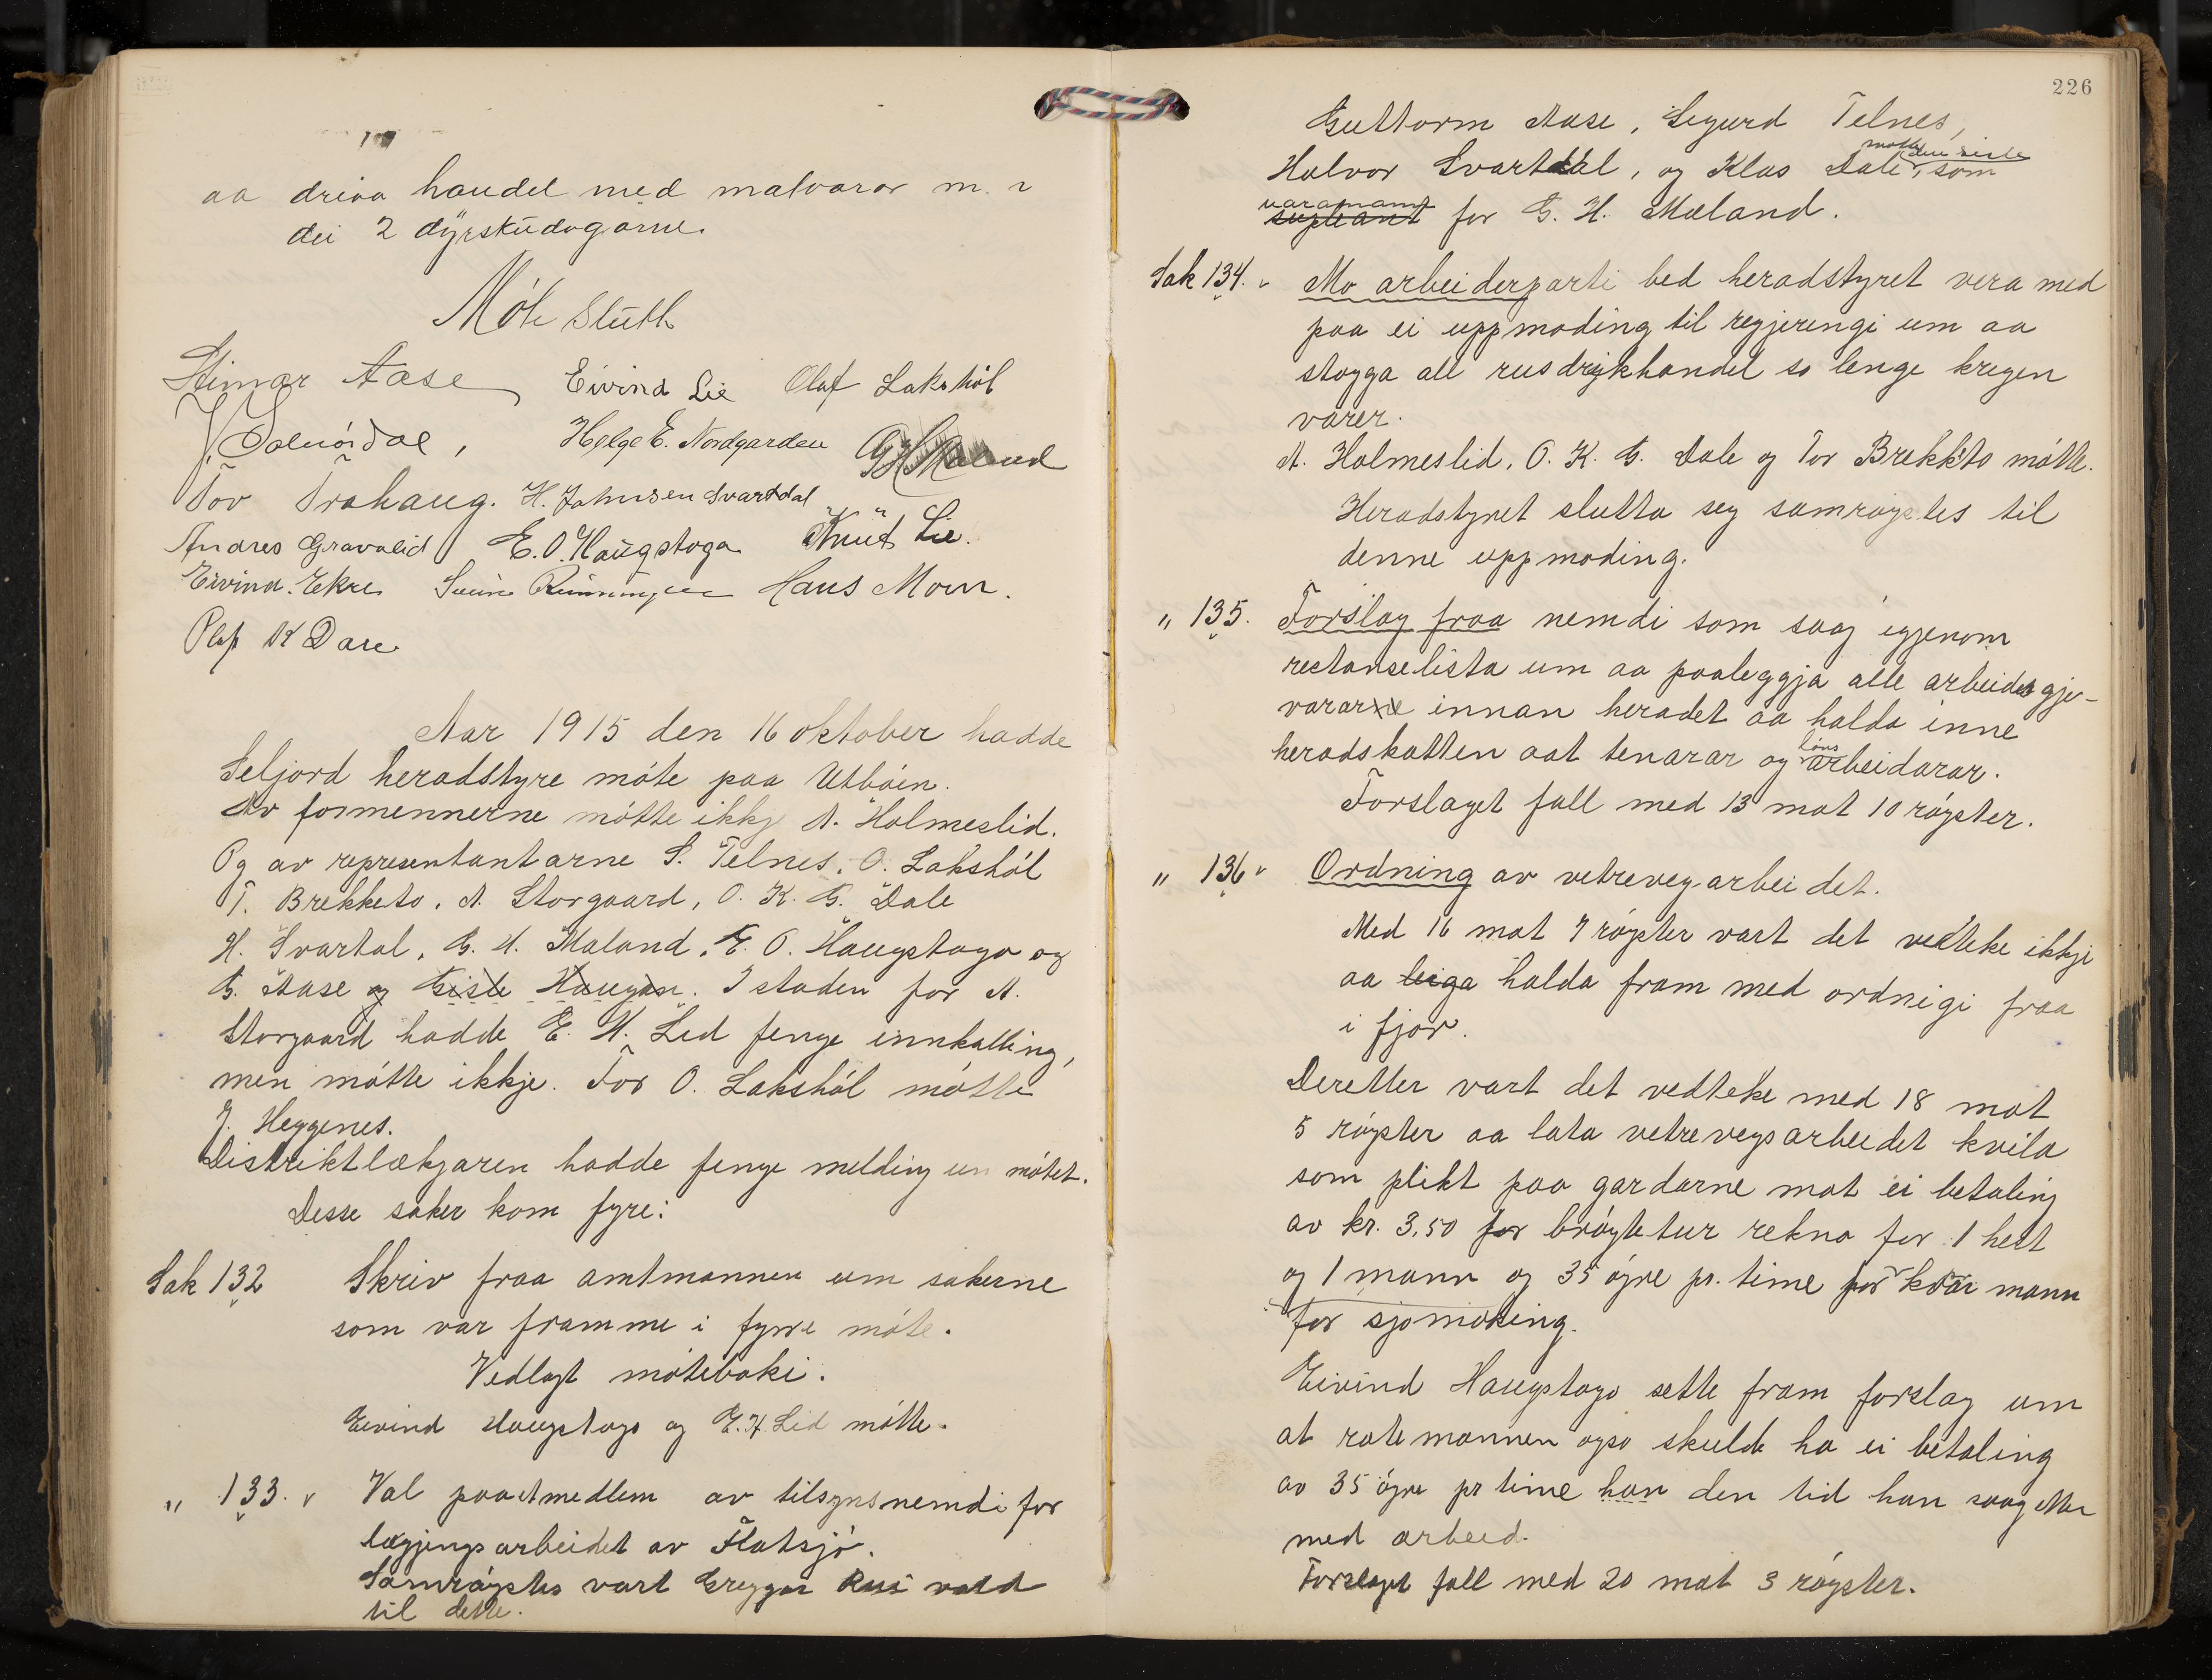 aa driva handel med matvaror m. 
dei 2 dyrskudagarne.
Móte slutt
Steinar Aase Eivind Lie Olaf Lakshól
Helge E. Nordgarden
Tov Trahaug. H. Johnsen Svartdal
Andres Gravalid E. O. Haugstoga Knut Lie.
Eivind Ekre Svein Hans Moen.
Olaf K Dale
Aar 1915 den 16 oktober hadde
Seljord heradstyre móte paa Utbóen.
Av formennerne mótte ikkj A. Holmeslid.
Og av representantarne S. Telnes, O. Lakshól
T. Brekketo, A. Storgaard, O. K. G. Dale
H. Svartal, G. H. Mæland, E. O. Haugstoga og
G. Aase og Gisle Haugan. I staden for A.
Storgaard hadde E. H. Lid fenge innkalling,
men mótte ikkje. For O. Lakshól mótte
J. Heggenes.
Distriktlækjaren hadde fenge melding um mótet.
Desse saker kom fyre:
Sak 132 Skriv fraa amtmannen um sakerne
som var framme i fyrre móte.
Vedlagt móteboki.
Eivind Haugstoga og E. H. Lid mótte.
" 133. v Val paa medlem av tilsynsnemdi for
lægjingsarbeidet av Flatsjó.
Samróystes vart Greggar Rui vald
til dette.
226
Guttorm Aase, Sigurd Telnes,
Halvor Svartdal, og Klas Dale, mótte den siste som
varamann supleant for G. H. Mæland.
Sak 134. v Mo arbeiderparti bed heradstyret vera med
paa ei uppmoding til regjeringi um aa
stogga all rusdrykhandel so lenge krigen
varer.
A. Holmeslid, O. K. G. Dale og Tor Brekkto mótte.
Heradstyret slutta seg samróystes til
denne uppmoding.
" 135. Forslag fraa nemdi som saag igjenom
restanselista um aa paaleggja alle arbeidsgje-
vararne innan heradet aa halda inne
heradskatten aat tenarar og lóns arbeidarar.
Forslaget fall med 13 mot 10 róyster.
" 136 v Ordning av vetrevegarbeidet.
Med 16 mot 7 róyster vart det vedteke ikkje
aa leiga halda fram med ordnigi fraa
i fjor.
Deretter vart det vedteke med 18 mot
5 róyster aa lata vetrevegsarbeidet kvila
som plikt paa gardarne mot ei betaling
av kr. 3,50 for bróytetur rekna for 1 hest
og 1 mann og 35 óyre pr. time for kvar mann
for sjomoking.
Eivind Haugstoga sette fram forslag um
at rotemannen ogso skulde ha ei betaling
av 35 óyre pr time han den tid han saag etter
med arbeid.
Forslaget fall med 20 mot 3 róyster.